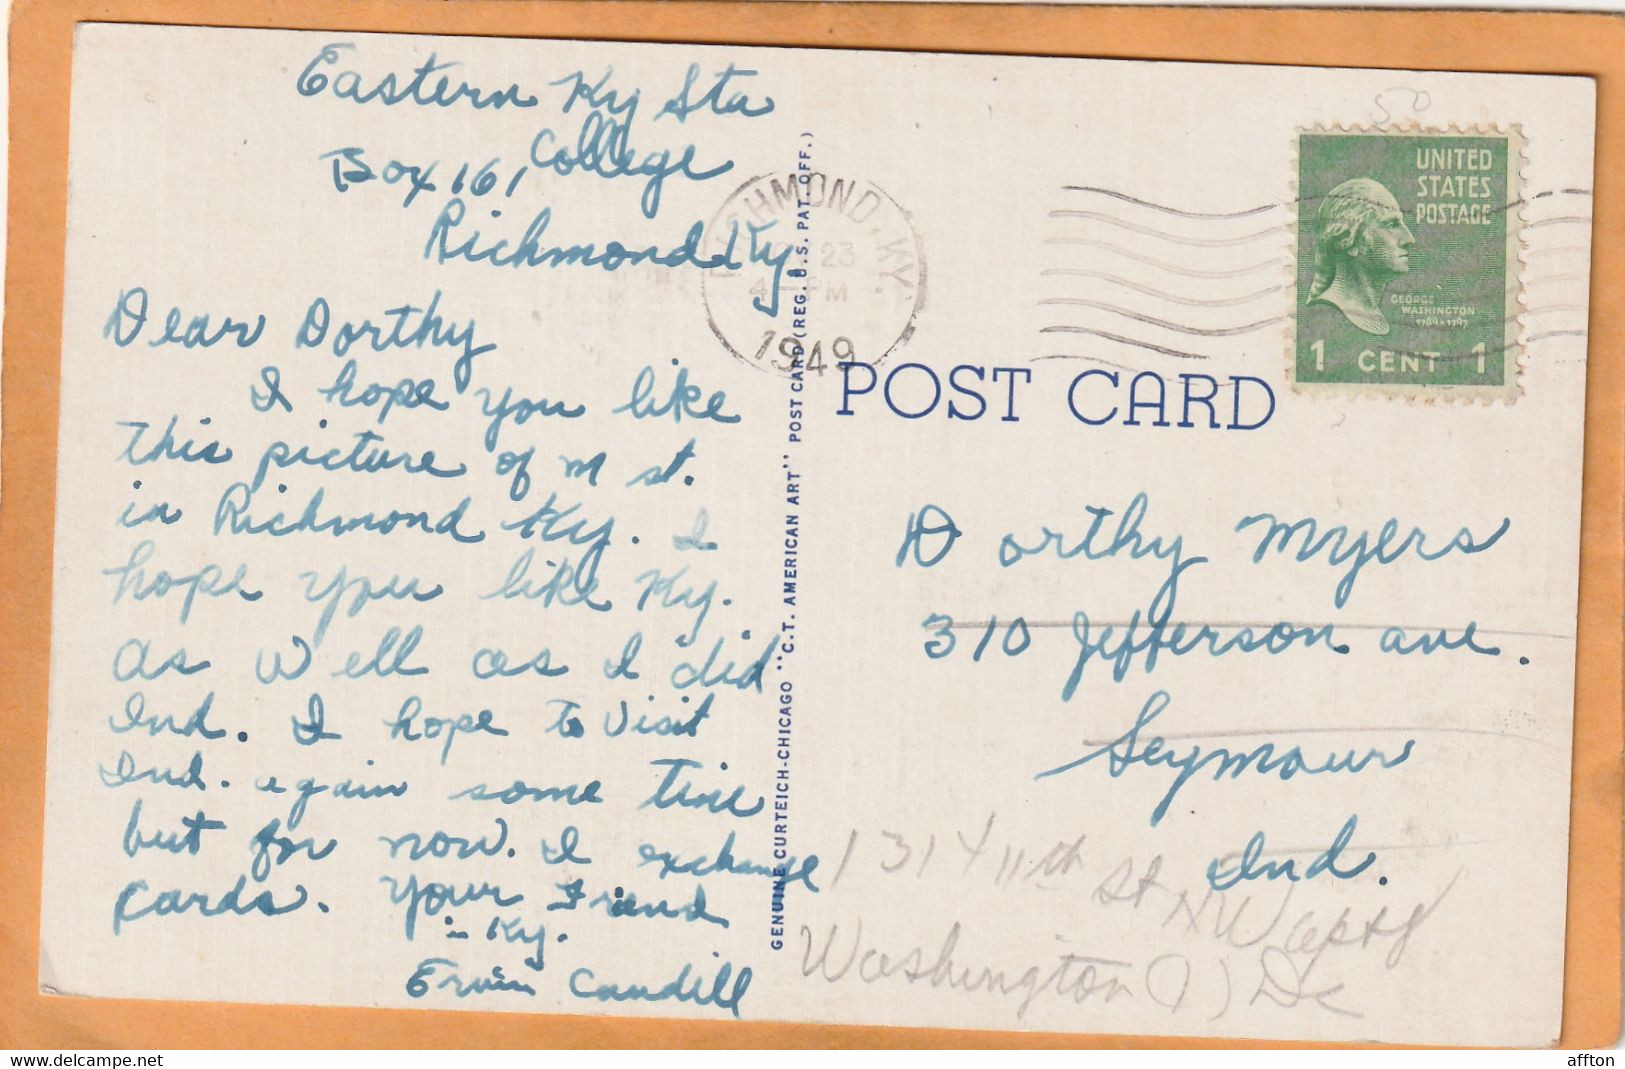 Eastern Ky Sta
College
Box 161,
Richmond Ky.
Dear Dorthy
I hope you like
this picture of m st.
in Richmond Ky. I
hope you like Ky.
as well as I did
Ind. I hope to visit
Ind. again some time
but for now. I exchange
cards. Your Friend
in Ky.
Ervin Caudill
GENUINE CURTEICH-CHICAGO "C.T. AMERICAN ART" POST CARD (REG. U.S. PAT. OFF.)
RICHMOND, KY.
23
4 - PM
1949
50
UNITED
STATES
POSTAGE
GEORGE
WASHINGTON
1789-1797
1 CENT 1
POST CARD
Dorthy Myers
310 Jefferson ave.
Seymour
Ind.
1314 11th St NW
Washington DC
affton